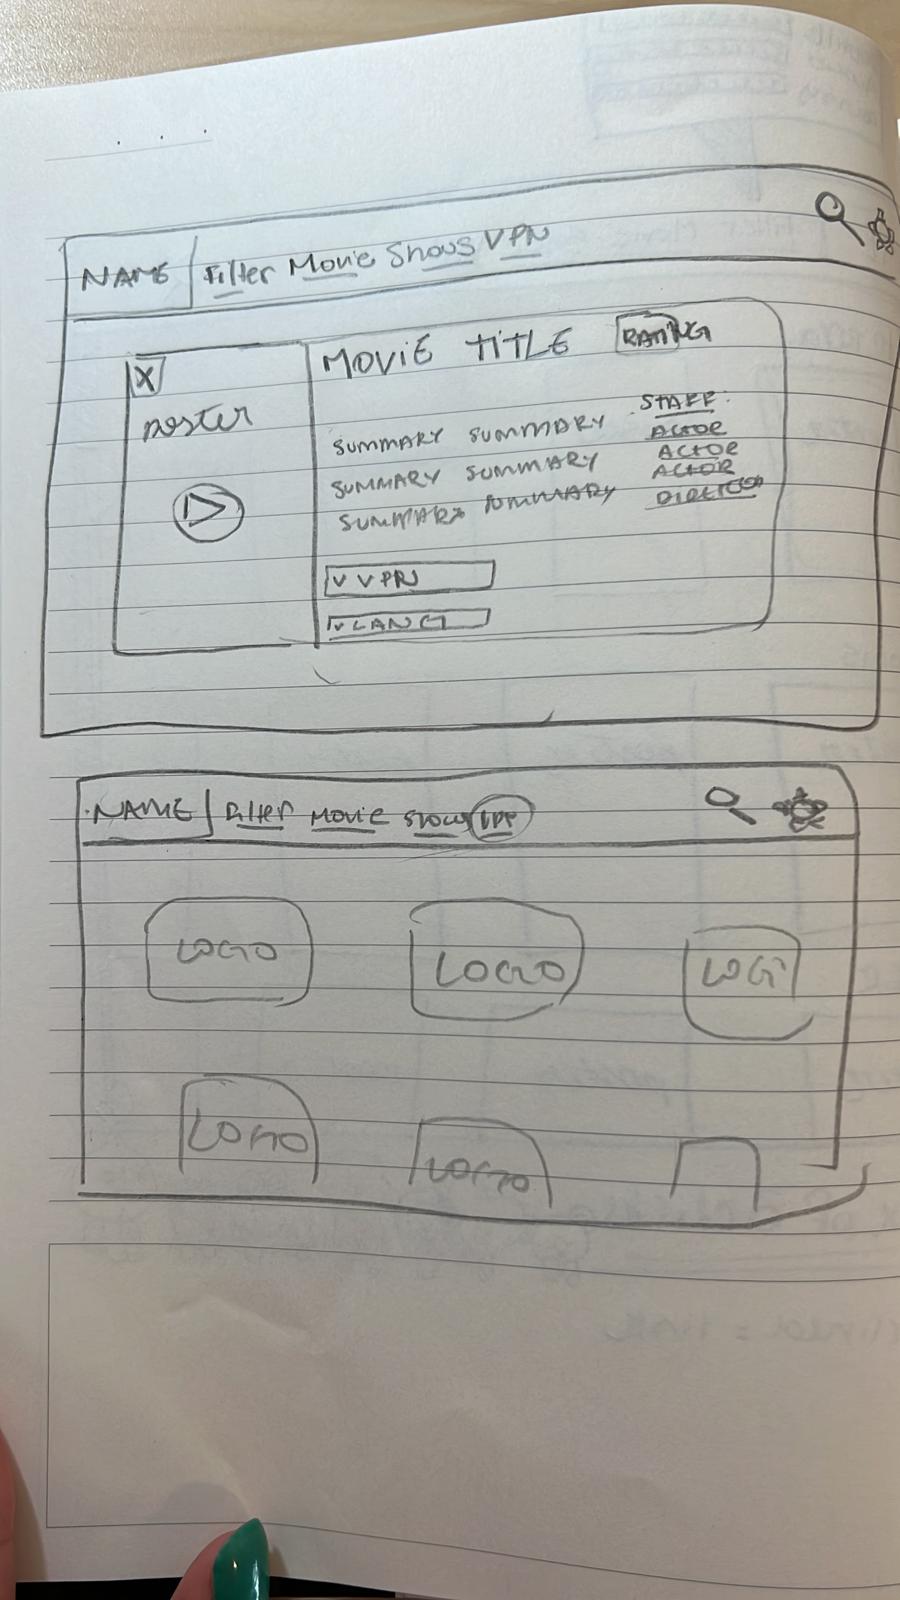 NAME Filter Movie Shows VPN
X
poster
MOVIE TITLE RATING
SUMMARY SUMMARY
SUMMARY SUMMARY
SUMMARY SUMMARY
STAFF:
ACTOR
ACTOR
ACTOR
DIRECTOR
V VPN
V LANG
NAME Filter Movie Shows VPP
LOGO LOGO LOG
LOGO LOGO